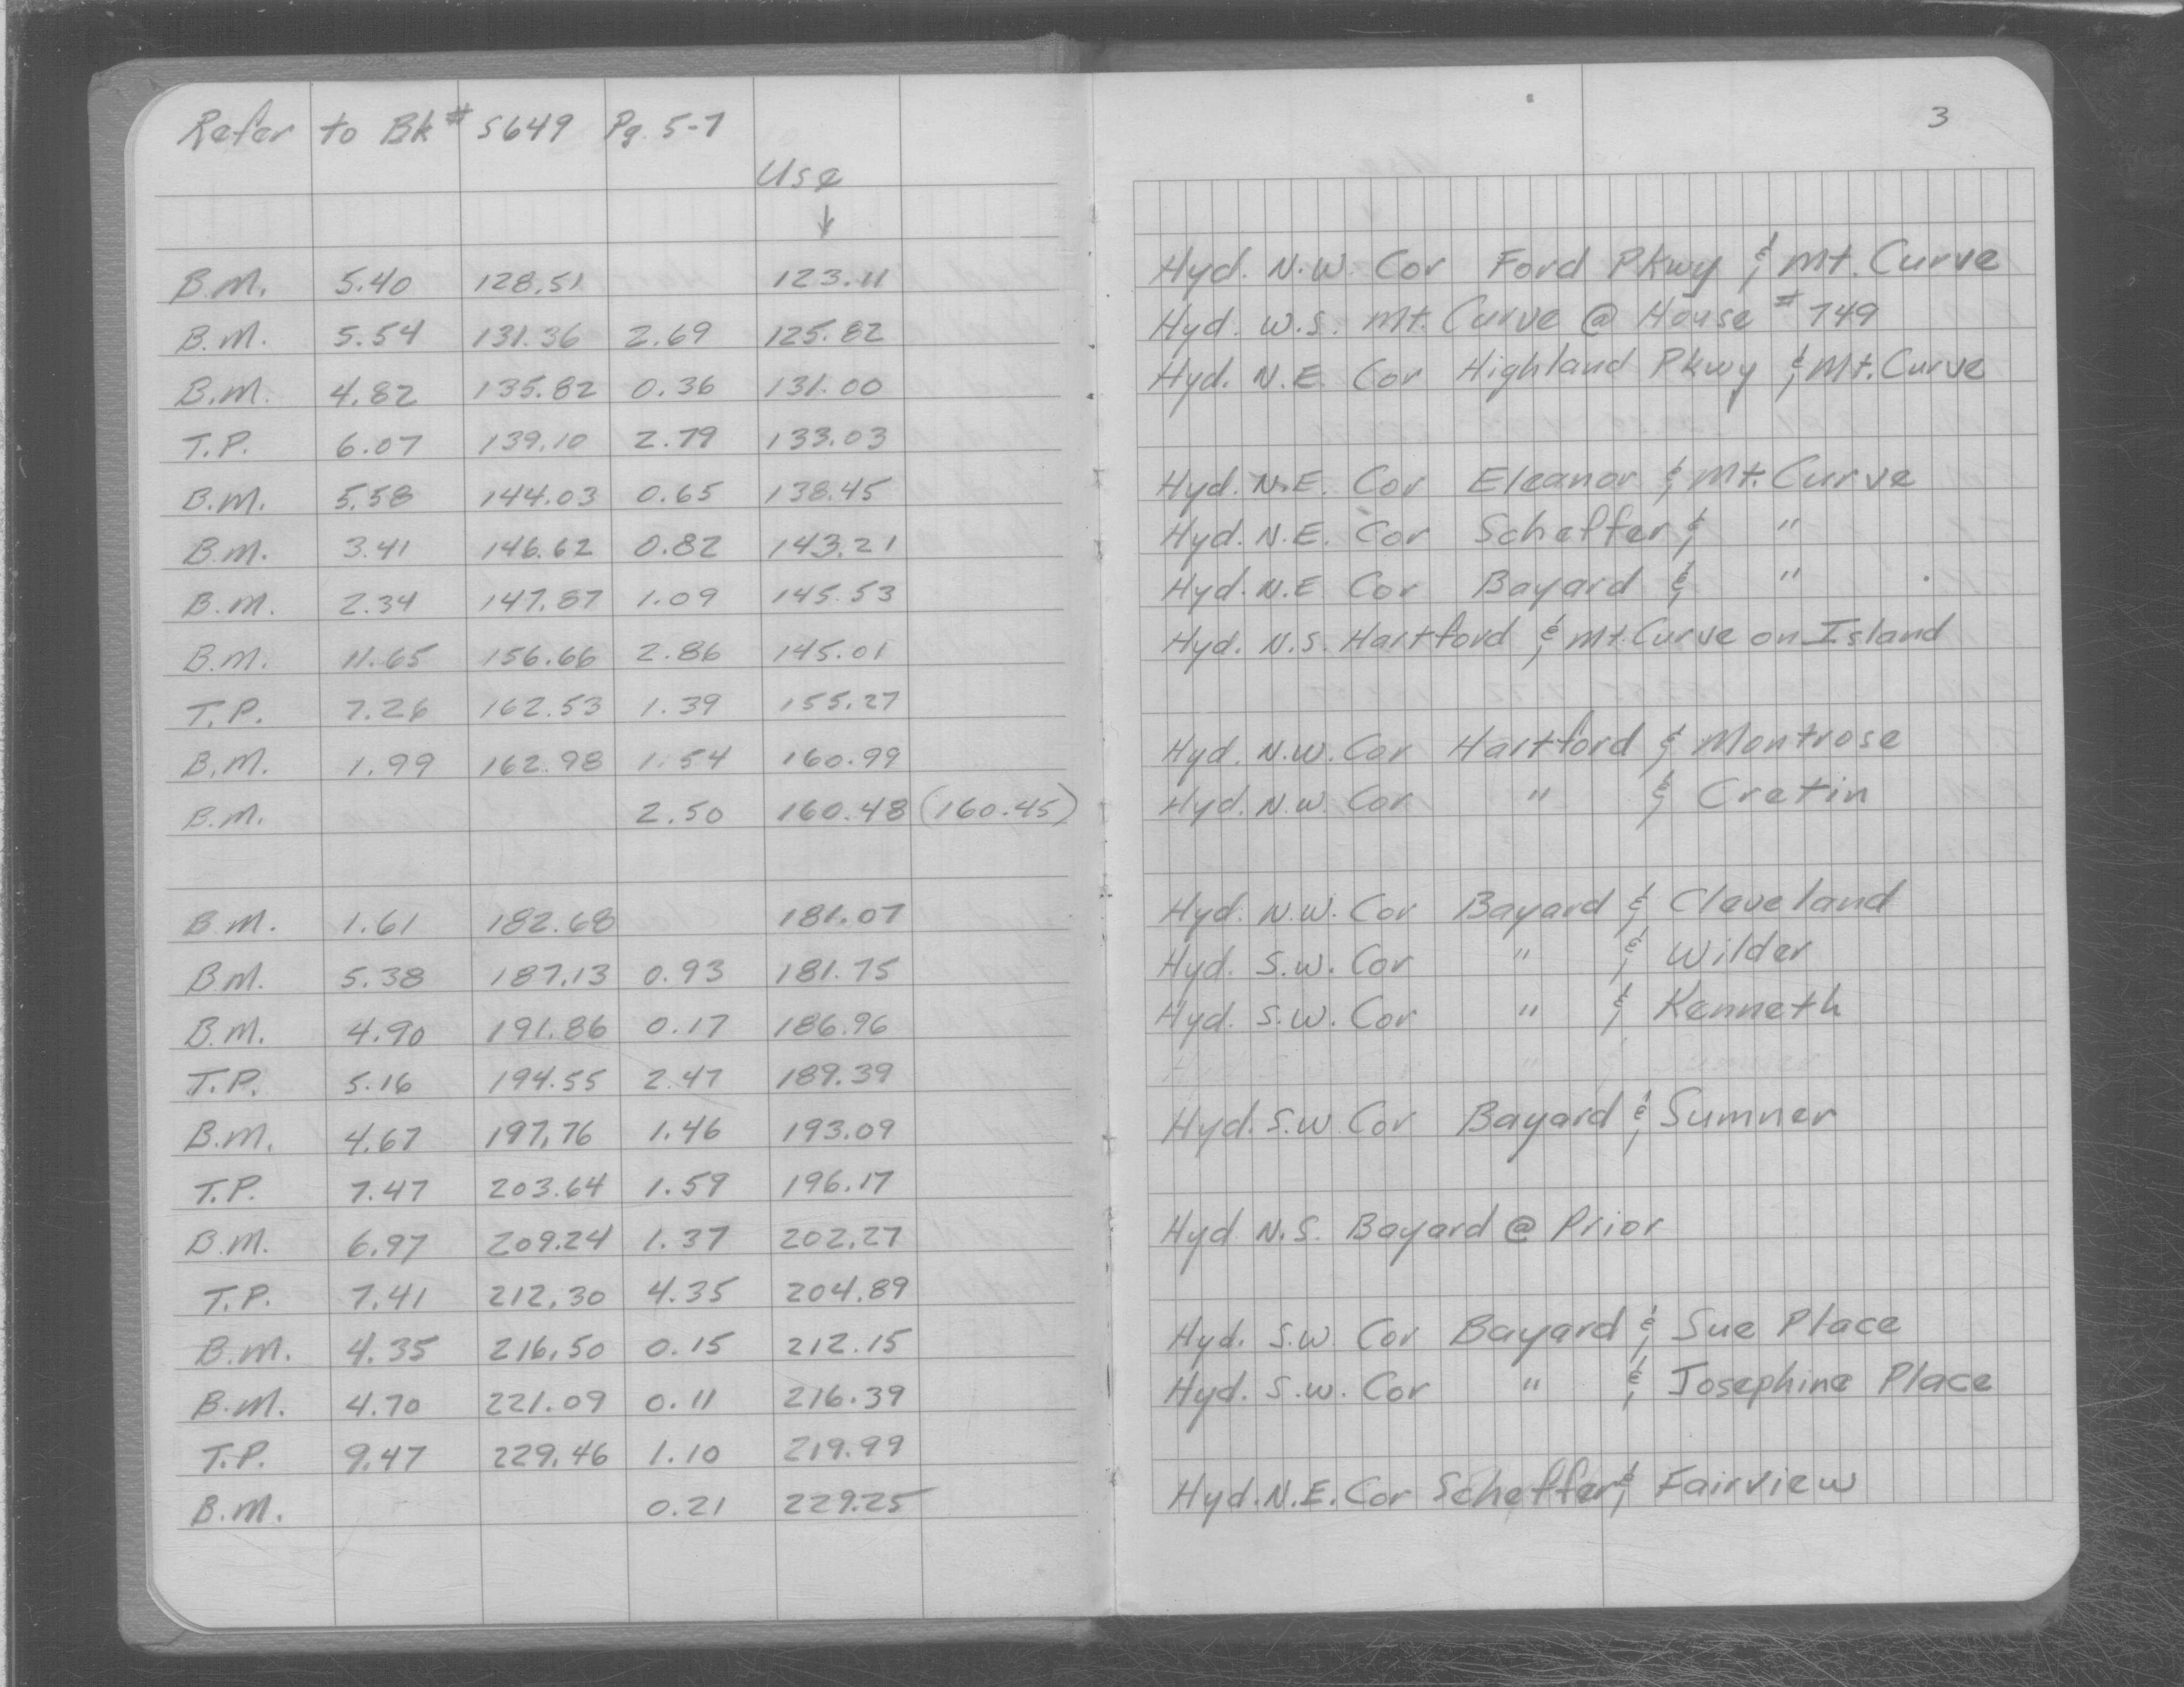 Refer to Bk # 5649 Pg. 5-7
3
Use
↓
B.M. 5.40 128.51 123.11 Hyd. N.W. Cor Ford Pkwy & Mt. Curve
B.M. 5.54 131.36 2.69 125.82 Hyd. W.S. Mt. Curve @ House # 749
B.M. 4.82 135.82 0.36 131.00 Hyd. N.E. Cor Highland Pkwy & Mt. Curve
T.P. 6.07 139.10 2.79 133.03
B.M. 5.58 144.03 0.65 138.45 Hyd. N.E. Cor Eleanor & Mt. Curve
B.M. 3.41 146.62 0.82 143.21 Hyd. N.E. Cor Scheffer & "
B.M. 2.34 147.87 1.09 145.53 Hyd. N.E Cor Bayard & "
B.M. 11.65 156.66 2.86 145.01 Hyd. N.S. Hartford & Mt. Curve on Island
T.P. 7.26 162.53 1.39 155.27
B.M. 1.99 162.98 1.54 160.99 Hyd. N.W. Cor Hartford & Montrose
B.M. 2.50 160.48 (160.45) Hyd. N.W. Cor " & Cretin
B.M. 1.61 182.68 181.07 Hyd. N.W. Cor Bayard & Cleveland
B.M. 5.38 187.13 0.93 181.75 Hyd. S.W. Cor " & Wilder
B.M. 4.90 191.86 0.17 186.96 Hyd. S.W. Cor " & Kenneth
T.P. 5.16 194.55 2.47 189.39
B.M. 4.67 197.76 1.46 193.09 Hyd. S.W. Cor Bayard & Sumner
T.P. 7.47 203.64 1.59 196.17
B.M. 6.97 209.24 1.37 202.27 Hyd N.S. Bayard @ Prior
T.P. 7.41 212.30 4.35 204.89
B.M. 4.35 216.50 0.15 212.15 Hyd. S.W. Cor Bayard & Sue Place
B.M. 4.70 221.09 0.11 216.39 Hyd. S.W. Cor " & Josephine Place
T.P. 9.47 229.46 1.10 219.99
B.M. 0.21 229.25 Hyd. N.E. Cor Scheffer & Fairview